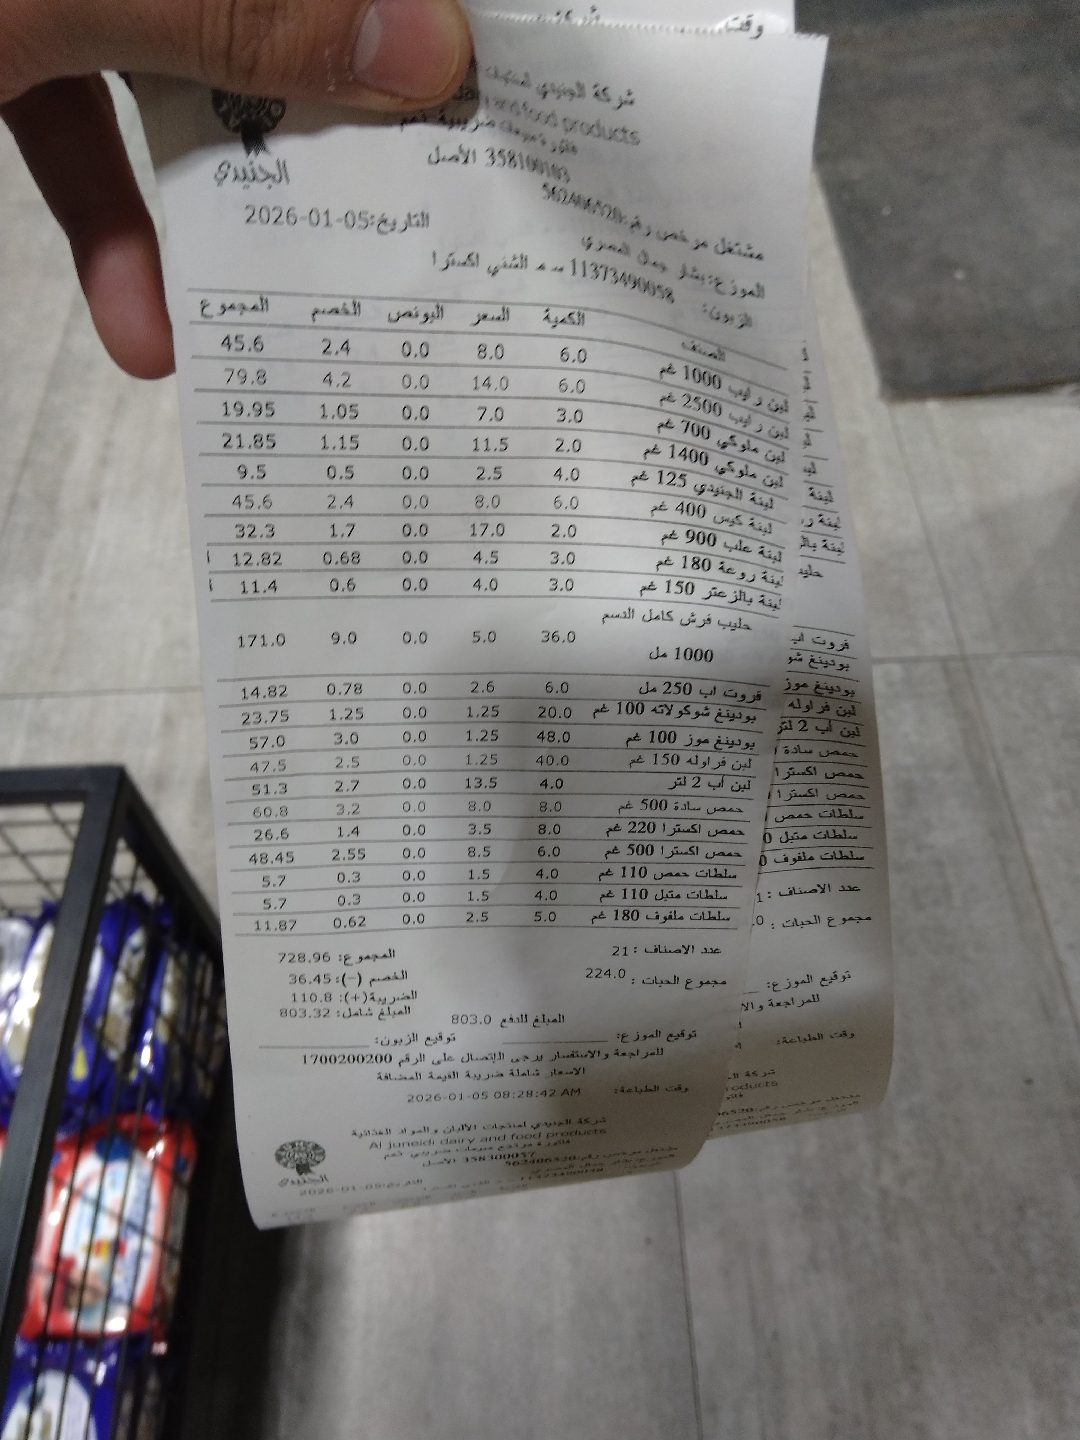 وقت
شركة الجنيدي لمنتجات
dairy and food products
ضريبية نعم
358100103 الأصل
الجنيدي
مشتغل مرخص رقم:562406520
التاريخ:2026-01-05
الموزع:بشار جمال المصري
الزبون: 11373490058 س م الشني اكسترا
الصنف الكمية السعر البونص الخصم المجموع
لبن رايب 1000 غم 6.0 8.0 0.0 2.4 45.6
لبن رايب 2500 غم 6.0 14.0 0.0 4.2 79.8
لبن ملوكي 700 غم 3.0 7.0 0.0 1.05 19.95
لبن ملوكي 1400 غم 2.0 11.5 0.0 1.15 21.85
لبنة الجنيدي 125 غم 4.0 2.5 0.0 0.5 9.5
لبنة كيس 400 غم 6.0 8.0 0.0 2.4 45.6
لبنة علب 900 غم 2.0 17.0 0.0 1.7 32.3
لبنة روعة 180 غم 3.0 4.5 0.0 0.68 12.82
لبنة بالزعتر 150 غم 3.0 4.0 0.0 0.6 11.4
حليب فرش كامل الدسم
1000 مل 36.0 5.0 0.0 9.0 171.0
فروت اب 250 مل 6.0 2.6 0.0 0.78 14.82
بودينغ شوكولاته 100 غم 20.0 1.25 0.0 1.25 23.75
بودينغ موز 100 غم 48.0 1.25 0.0 3.0 57.0
لبن فراوله 150 غم 40.0 1.25 0.0 2.5 47.5
لبن أب 2 لتر 4.0 13.5 0.0 2.7 51.3
حمص سادة 500 غم 8.0 8.0 0.0 3.2 60.8
حمص اكسترا 220 غم 8.0 3.5 0.0 1.4 26.6
حمص اكسترا 500 غم 6.0 8.5 0.0 2.55 48.45
سلطات حمص 110 غم 4.0 1.5 0.0 0.3 5.7
سلطات متبل 110 غم 4.0 1.5 0.0 0.3 5.7
سلطات ملفوف 180 غم 5.0 2.5 0.0 0.62 11.87
عدد الاصناف : 21 المجموع: 728.96
مجموع الحبات : 224.0 الخصم (-): 36.45
الضريبة(+): 110.8
المبلغ شامل: 803.32
المبلغ للدفع 803.0
توقيع الموزع: توقيع الزبون:
للمراجعة والاستفسار يرجى الإتصال على الرقم 1700200200
الاسعار شاملة ضريبة القيمة المضافة
وقت الطباعة: 2026-01-05 08:28:42 AM
شركة الجنيدي لمنتجات الألبان والمواد الغذائية
Al juneidi dairy and food products
فاتورة مرتجع مبيعات ضريبي نعم
358300057 الأصل
الجنيدي
مشتغل مرخص رقم:562406520
التاريخ:2026-01-05
فروت اب
بودينغ شو
بودينغ موز
لبن فراوله
لبن أب 2 لتر
حمص سادة
حمص اكسترا
حمص اكسترا
سلطات حمص
سلطات متبل
سلطات ملفوف
عدد الاصناف :
مجموع الحبات :
توقيع الموزع:
للمراجعة
وقت الطباعة: